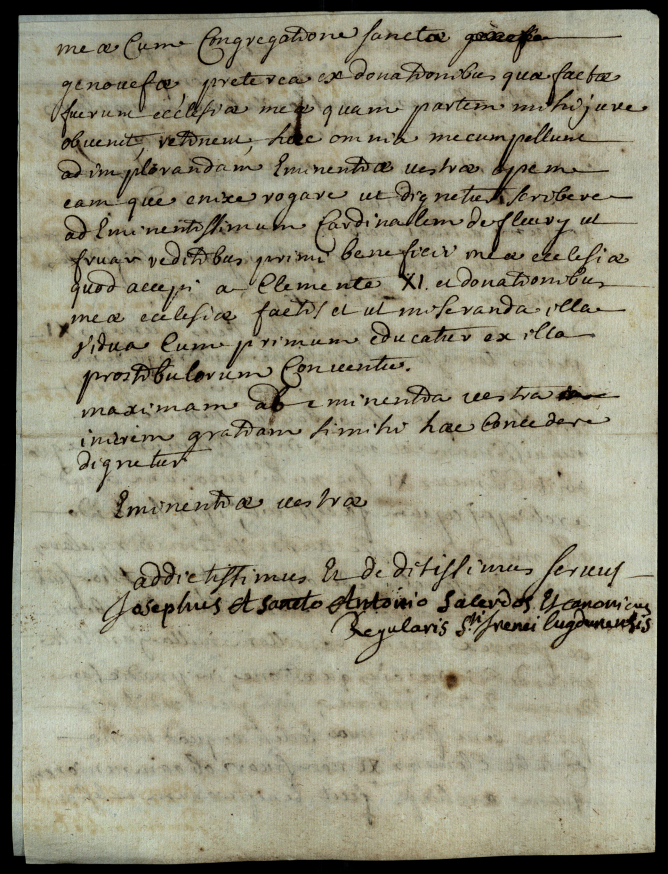 meæ cum Congregatione sanctæ
genovefæ, preterea ex donationibus quæ factæ
fuerunt ecclesiæ meæ quam partem mihi jure
obvenit, retinent, hæc omnia me compellunt
ad implorandam Eminentiæ vestræ opem
eam que enixe rogare ut dignetur scribere
ad Eminentissimum Cardinalem de fleury ut
fruar reditibus primi beneficii meæ ecclesiæ
quod accepi a Clemente XI. et donationibus
meæ ecclesiæ factis et ut miseranda illa
vidua cum primum educatur ex illa
prostibulorum Conventu.
maximam ab eminentia vestra
inirem gratiam si mihi hæc concedere
dignetur
Eminentiæ vestræ
addictissimus Et deditissimus servus
Josephus A sancto Antonio sacerdos Et canonicus
Regularis Sti Irenei lugdunensis